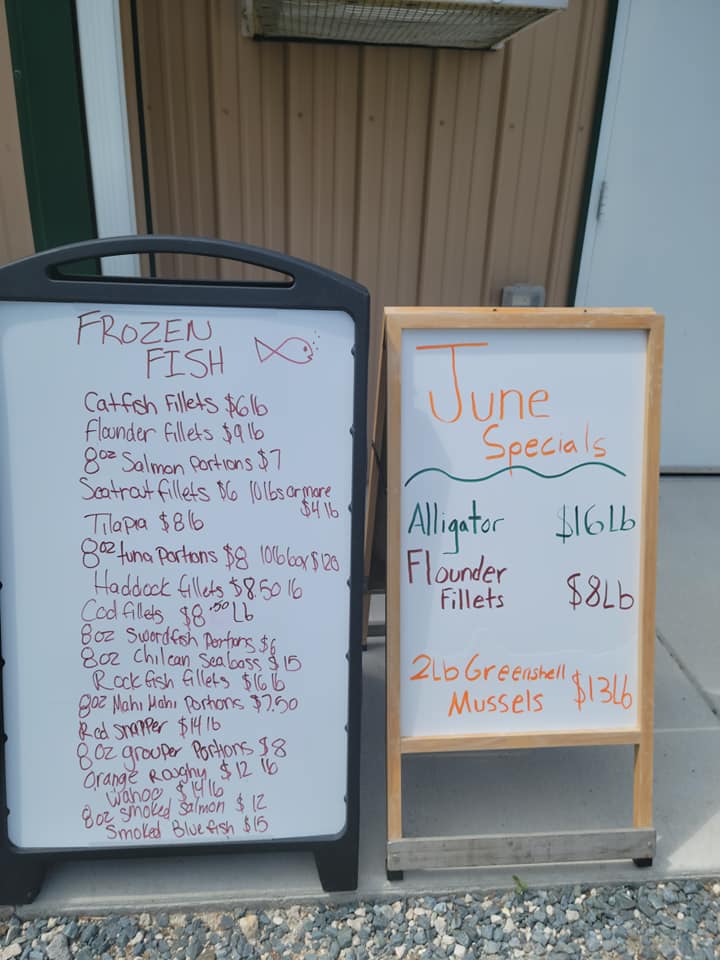 FROZEN
FISH
Catfish Fillets $6 lb
flounder fillets $9 lb
8oz Salmon Portions $7
Seatrout fillets $6 10lbs or more
$4 lb
Tilapia $8 lb
8oz tuna Portions $8 10lb box $120
Haddock fillets $8.50 lb
Cod fillets $8.50 Lb
8oz Swordfish Portions $6
8oz Chilean Seabass $15
Rockfish fillets $16 lb
8oz Mahi Mahi Portions $7.50
Red snapper $14 lb
8oz grouper Portions $8
Orange Roughy $12 lb
Wahoo $14 lb
8oz smoked salmon $12
Smoked Bluefish $15
June
Specials
Alligator $16Lb
Flounder
Fillets $8Lb
2Lb Greenshell
Mussels $13Lb